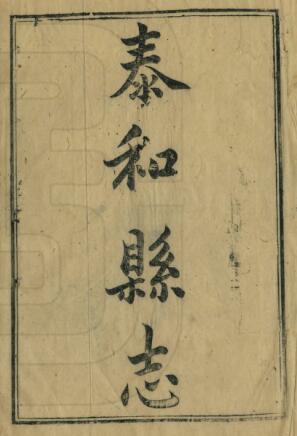 泰和縣志